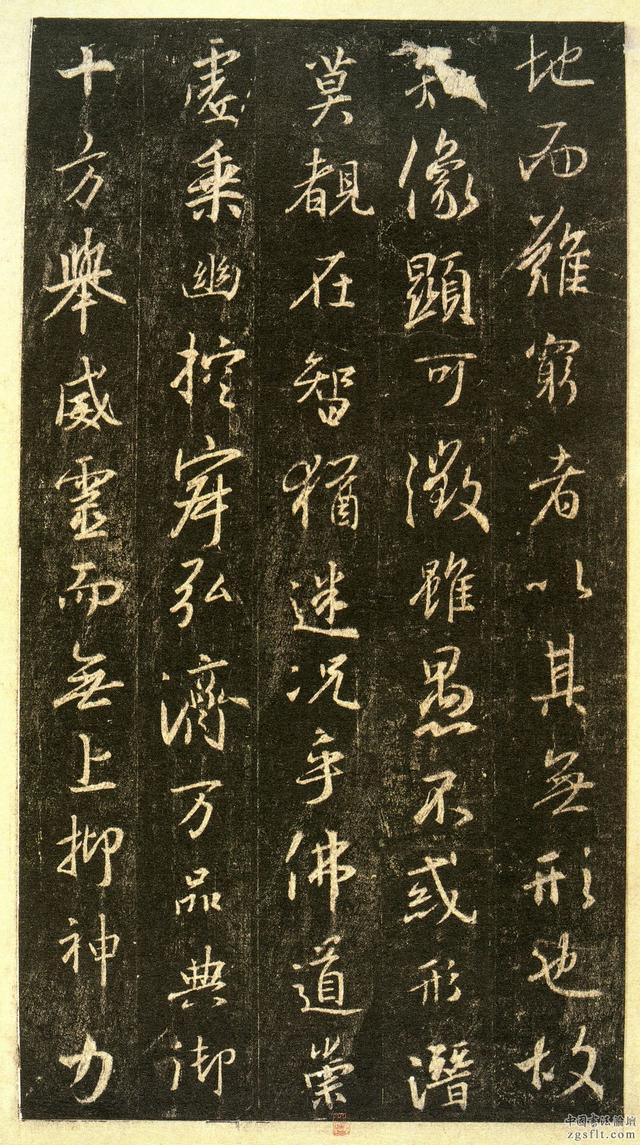 地而難窮者以其無形也故
知像顯可徵雖愚不惑形潛
莫覩在智猶迷況乎佛道崇
虛乘幽控寂弘濟万品典御
十方舉威靈而無上抑神力
中国书法论坛
zgsflt.com